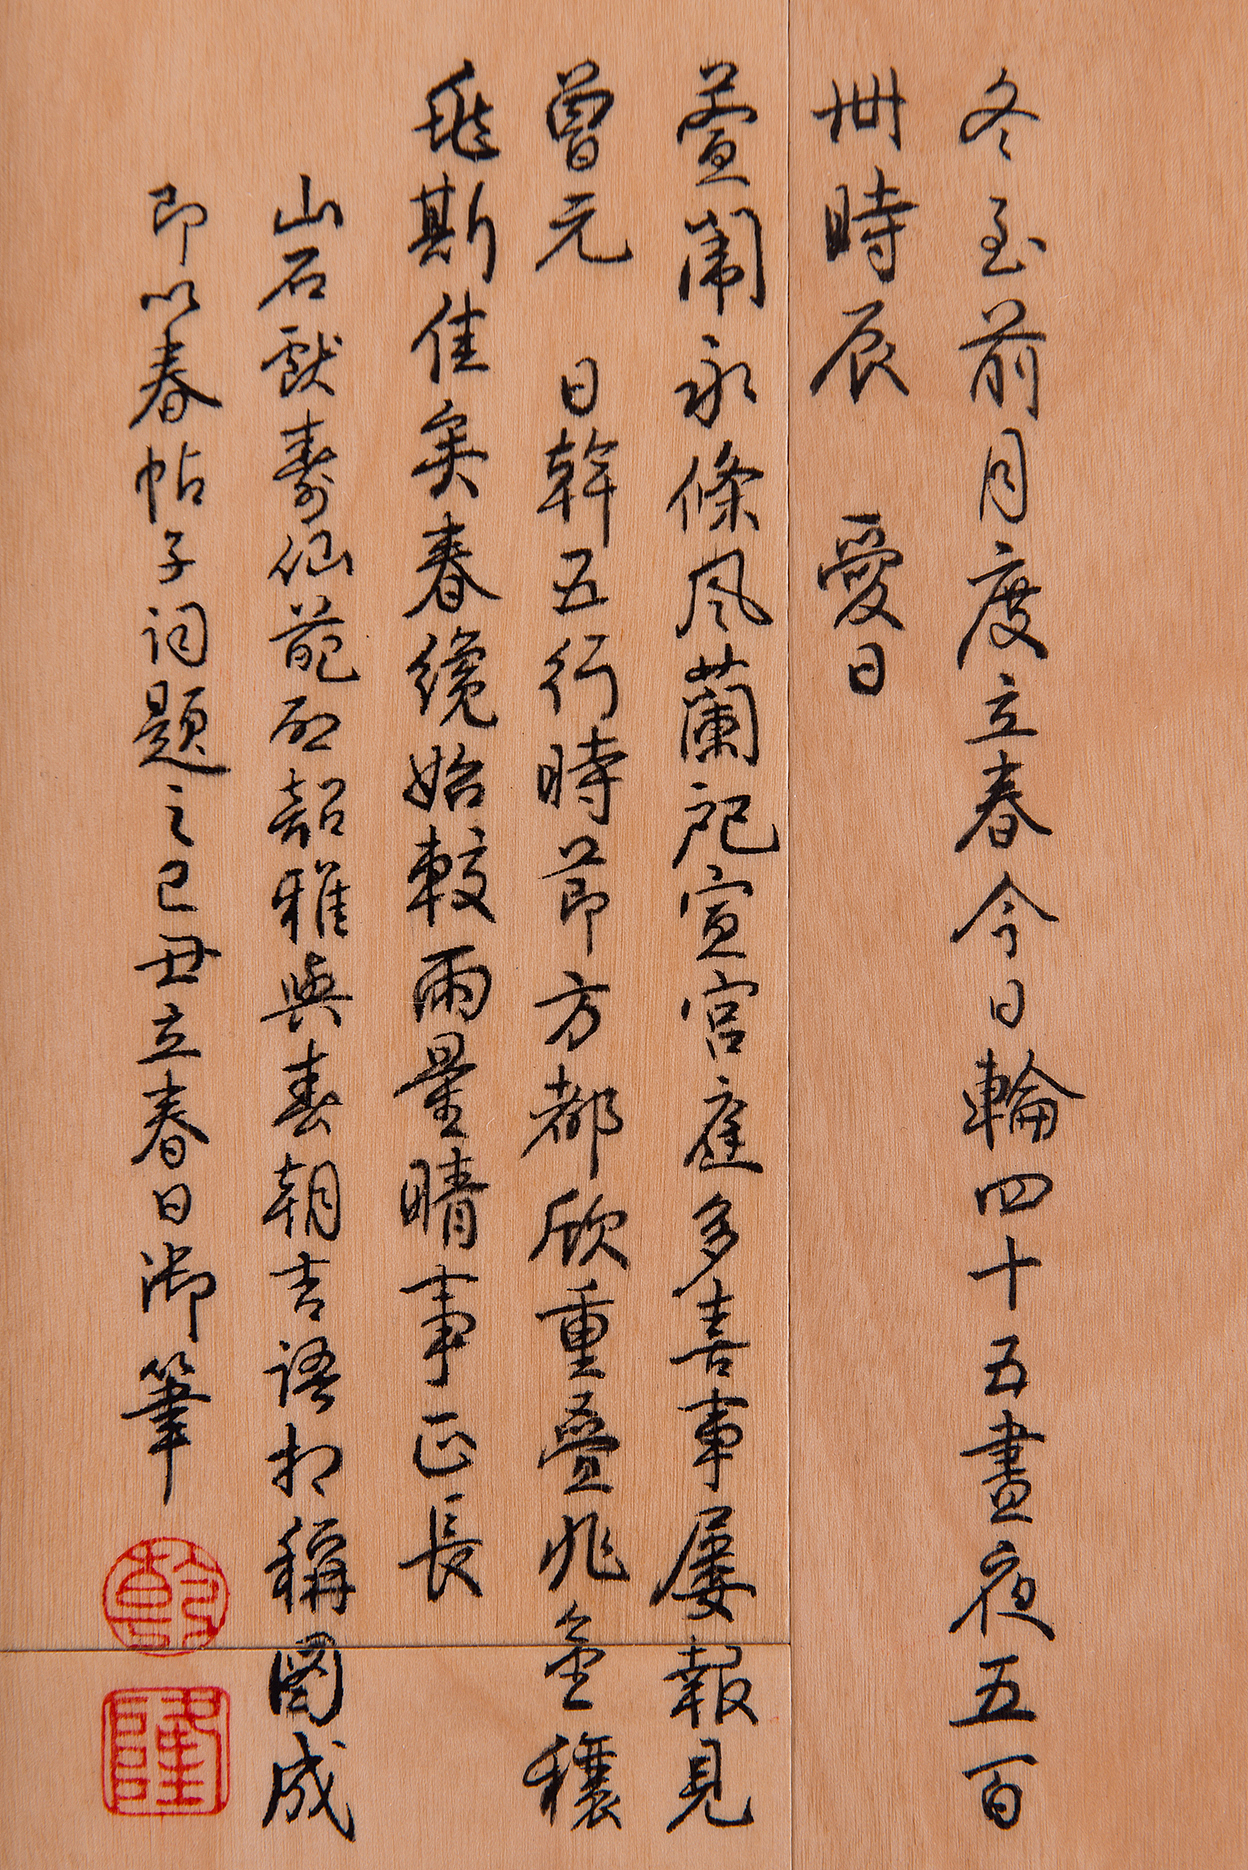 冬至前月度立春今日輪四十五晝夜五百
卌時辰 愛日
萱闈永條風蘭戺宣宮庭多喜事屢報見
曾元 日幹五行時節方都欣重疊兆金穰
螽斯佳矣春纔始較雨量晴事正長
山石獻壽仙葩研韶雅與春朝吉語相稱圖成
即以春帖子詞題之己丑立春日御筆
乾
隆